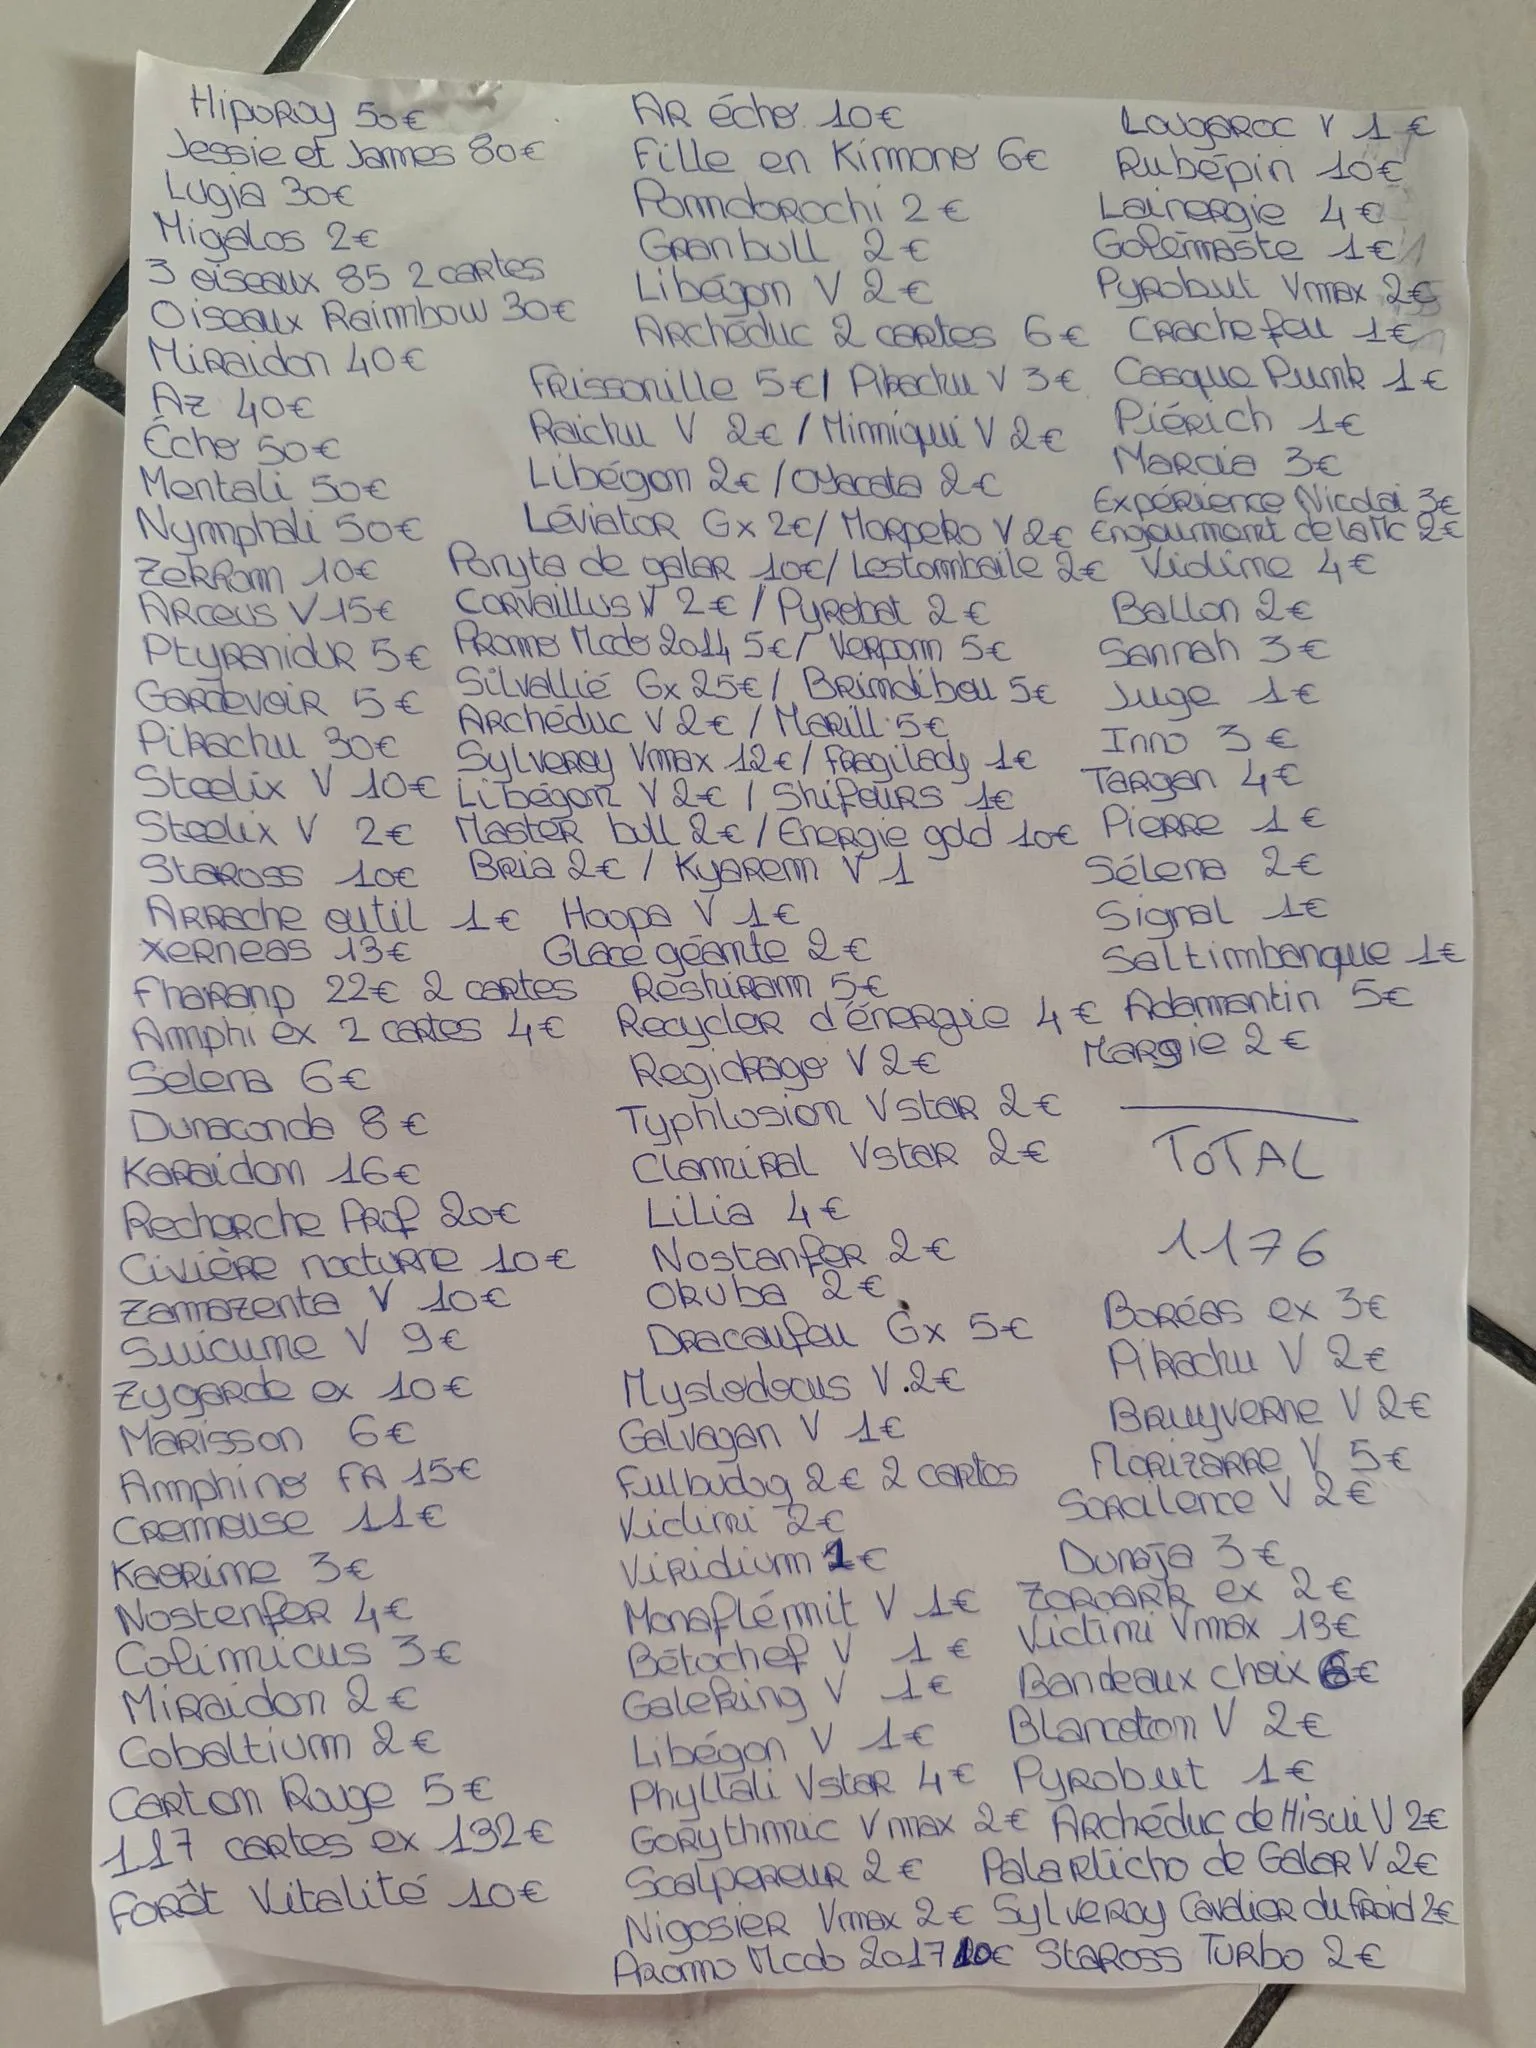 Hiporoy 50€
Jessie et James 80€
Lugia 30€
Migalos 2€
3 oiseaux 85 2 cartes
Oiseaux Raimbow 30€
Miraidon 40€
Az 40€
Écho 50€
Mentali 50€
Nymphali 50€
Zekrom 10€
Arceus V 15€
Ptyranidur 5€
Gardevoir 5€
Pikachu 30€
Steelix V 10€
Steelix V 2€
Staross 10€
Arrache outil 1€
Xerneas 13€
Pharamp 22€ 2 cartes
Amphi ex 2 cartes 4€
Selena 6€
Dunaconda 8€
Karaidon 16€
Recherche Prof 20€
Civière nocturne 10€
Zamazenta V 10€
Suicune V 9€
Zygarde ex 10€
Marisson 6€
Amphino FA 15€
Cremouse 11€
Kaorine 3€
Nostenfer 4€
Colimucus 3€
Miraidon 2€
Cobaltium 2€
Carton Rouge 5€
117 cartes ex 132€
Forêt Vitalité 10€
AR écho 10€
Fille en Kimono 6€
Pomdorochi 2€
Granbull 2€
Libégon V 2€
Archéduc 2 cartes 6€
Frissonille 5€ / Pikachu V 3€
Raichu V 2€ / Mimiqui V 2€
Libégon 2€ / Oyacata 2€
Léviator Gx 2€ / Morpeko V 2€
Ponyta de galar 10€ / Lestombaile 2€
Corvaillus V 2€ / Pyrobat 2€
Promo Mcdo 2014 5€ / Verpom 5€
Silvallié Gx 25€ / Brindibou 5€
Archéduc V 2€ / Marill 5€
Sylveroy Vmax 12€ / Fragilady 1€
Libégon V 2€ / Shifours 1€
Master bull 2€ / Energie gold 10€
Bria 2€ / Kyarem V 1
Hoopa V 1€
Glace géante 2€
Reshiram 5€
Recycler d'énergie 4€
Regidrago V 2€
Typhlosion Vstar 2€
Clamiral Vstar 2€
Lilia 4€
Nostenfer 2€
Okuba 2€
Dracaufeu Gx 5€
Myslodocus V 2€
Galvagan V 1€
Fulbudog 2€ 2 cartes
Victini 2€
Viridium 1€
Monaflémit V 1€
Bétochef V 1€
Galeking V 1€
Libégon V 1€
Phyllali Vstar 4€
Gorythmic Vmax 2€
Scalpereur 2€
Nigosier Vmax 2€
Promo Mcdo 2017 10€
Lougaroc V 1€
Rubépin 10€
Lainergie 4€
Golémaste 1€
Pyrobut Vmax 2€
Crache feu 1€
Casque Punk 1€
Piérich 1€
Marcia 3€
Expérience Nicolaï 3€
Engourmant de la Mc 2€
Vidime 4€
Ballon 2€
Sannah 3€
Juge 1€
Inno 3€
Targan 4€
Pierre 1€
Séléna 2€
Signal 1€
Saltimbanque 1€
Adamantin 5€
Margie 2€
TOTAL
1176
Boréas ex 3€
Pikachu V 2€
Bruyverne V 2€
Florizarre V 5€
Sorcilence V 2€
Dunaja 3€
Zoroark ex 2€
Victini Vmax 13€
Bandeaux choix 6€
Blancoton V 2€
Pyrobut 1€
Archéduc de Hisui V 2€
Palarticho de Galar V 2€
Sylveroy Cavalier du froid 2€
Staross Turbo 2€